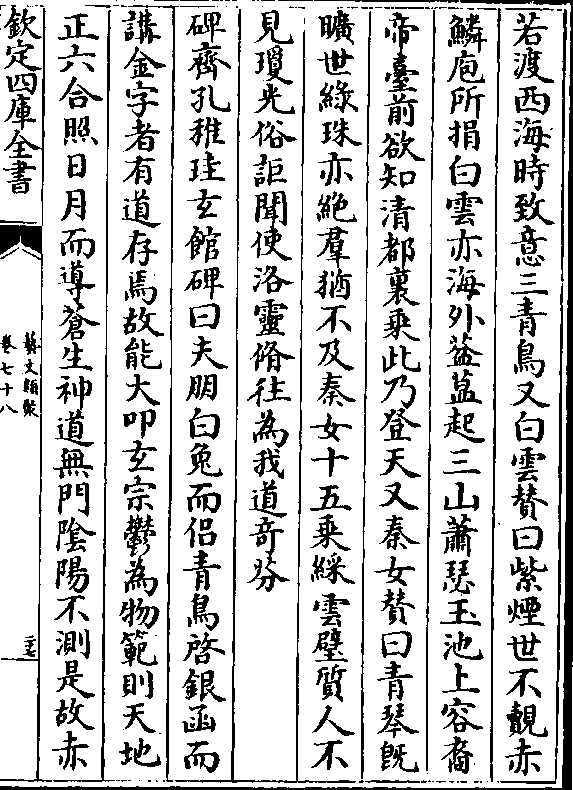 若渡西海時致意三青鳥又白雲賛曰紫煙世不覿赤
鱗庖所捐白雲亦海外葢葢起三山蕭瑟玉池上容裔
帝臺前欲知清都裏乗此乃登天又秦女賛曰青琴旣
曠世綠珠亦絶羣猶不及秦女十五乗綵雲璧質人不
見瓊光俗詎聞使洛靈脩往為我道竒芬
碑齊孔稚珪玄館碑曰夫朋白兔而侣青鳥啓銀函而
講金字者有道存焉故能大叩玄宗鬱為物範則天地
正六合照日月而導蒼生神道無門陰陽不測是故赤
欽定四庫全書
藝文類聚
卷七十八